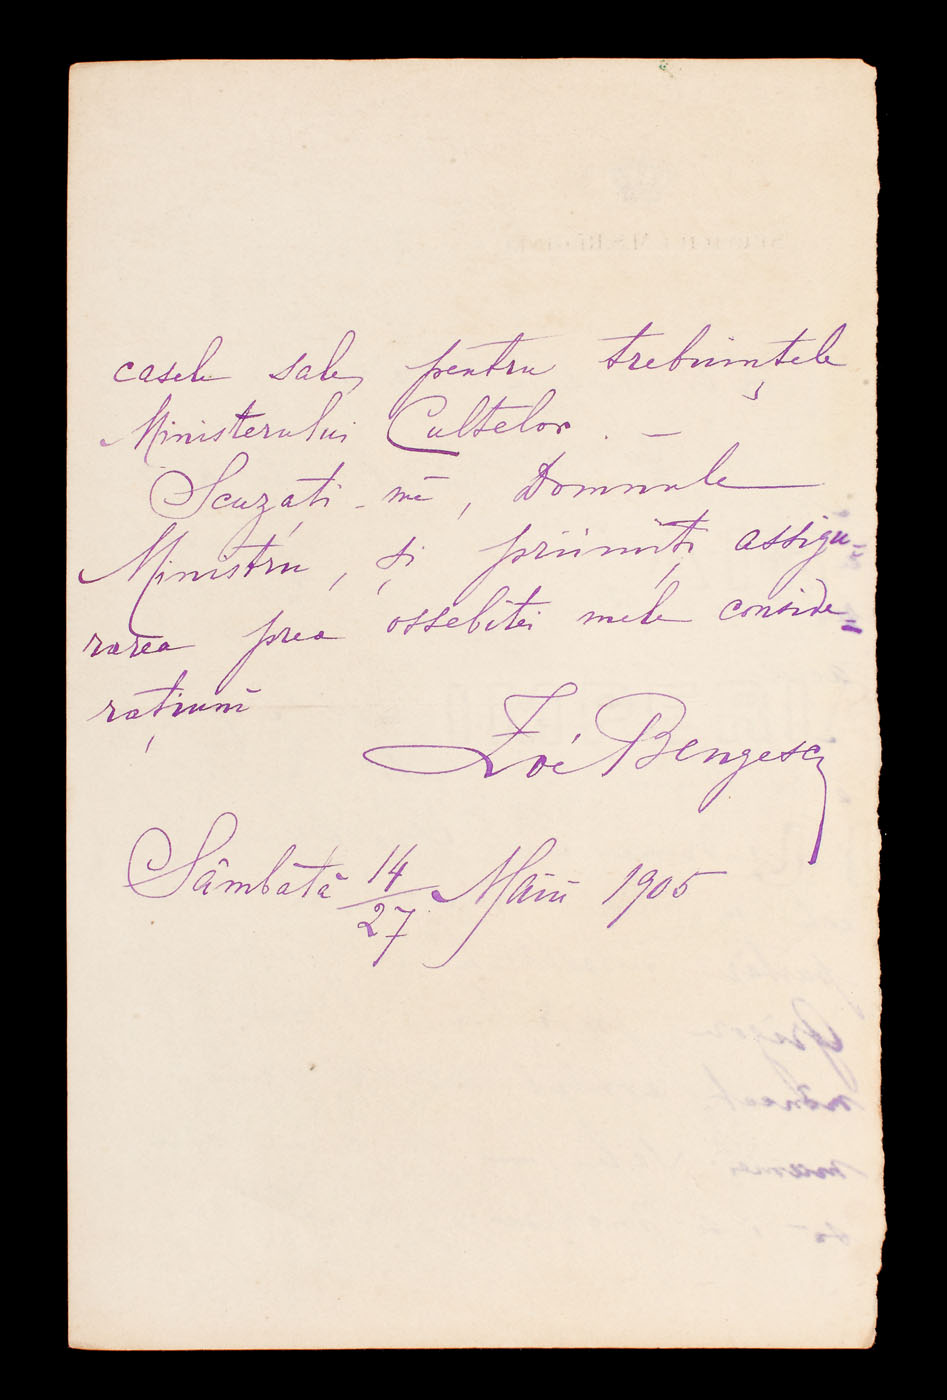 casele sale, pentru trebuințele
Ministerului Cultelor. —
Scuzați-mē, Domnule
Ministru, și priimiți assigu-
rarea prea ossebitei mele conside-
rațiunĭ
Zoé Bengescu
Sâmbătă 14/27 Maiŭ 1905